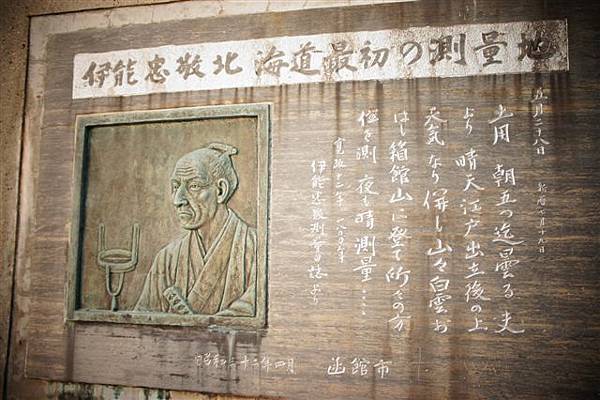 伊能忠敬北海道最初の測量地
五月二十八日 新暦七月十九日
土用 朝五つ迄曇る 夫
より 晴天 江戸出立後の上
天気なり 併し山々白雲お
ほし箱館山に登て所々の方
位を測 夜も晴測量……
寛政十二年 一八〇〇年
伊能忠敬測量日誌より
昭和三十二年四月 函館市